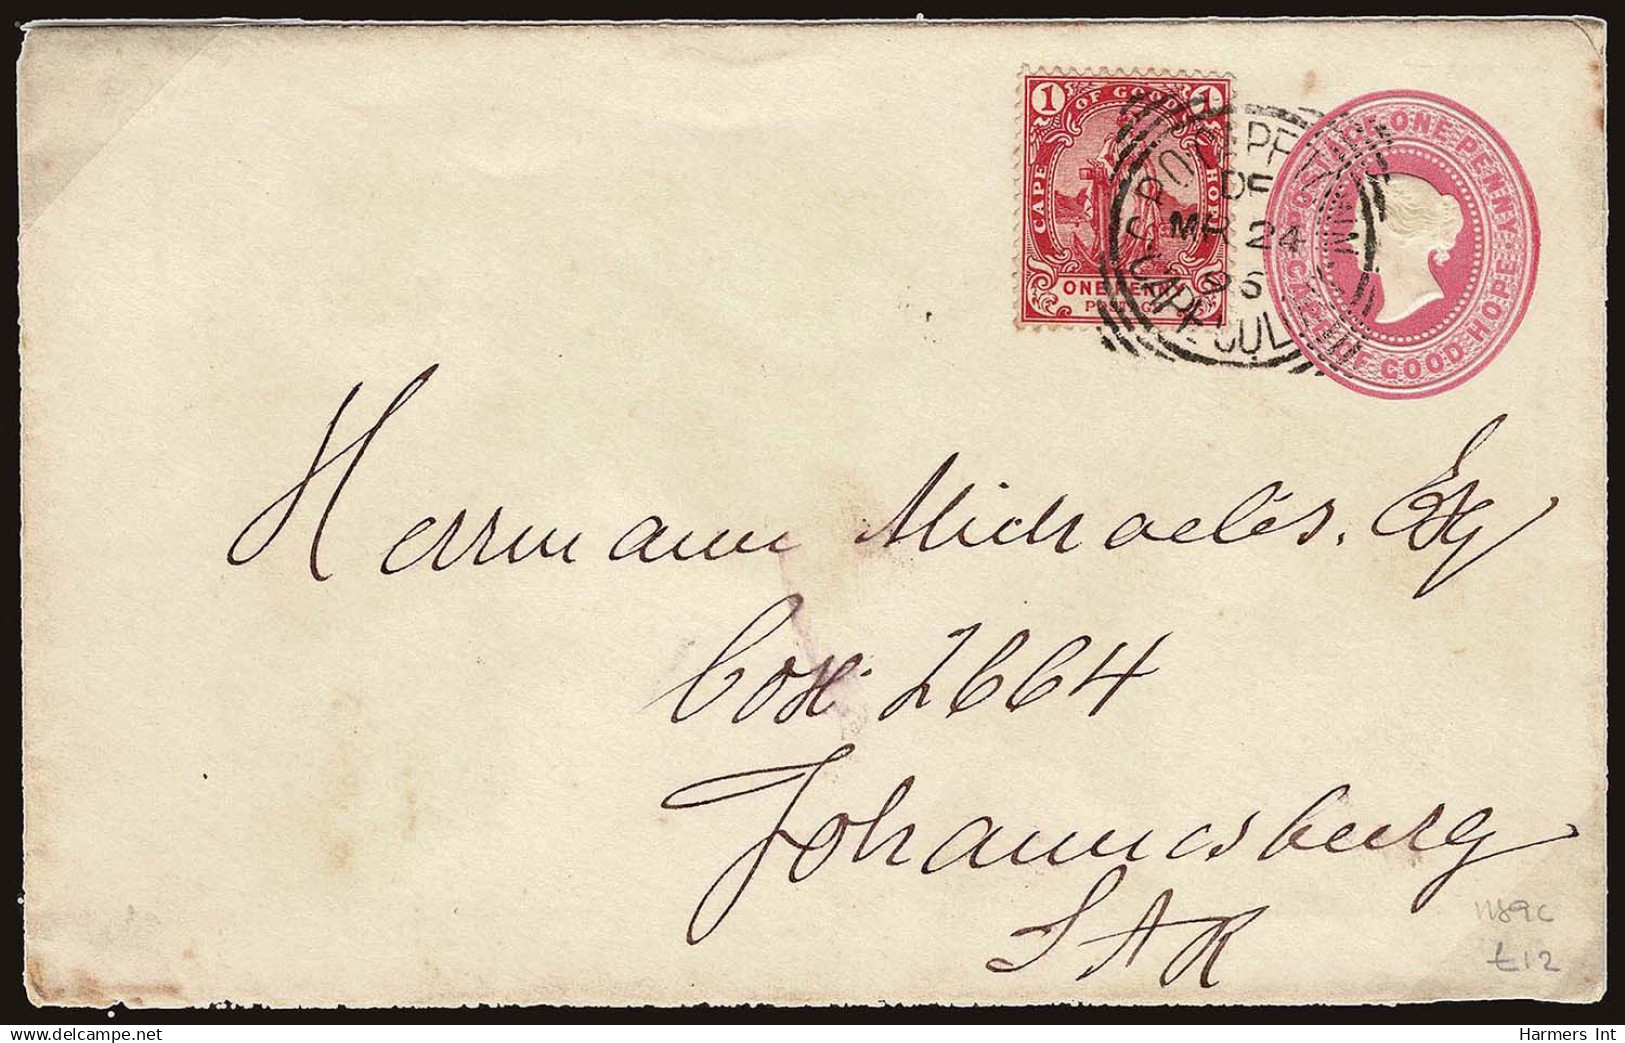 1 OF GOOD 1
CAPE HOPE
ONE PENNY
POSTAGE
G.P.O. CAPE TOWN
DE
MR 24
96
CAPE COL
POSTAGE ONE PENNY
CAPE OF GOOD HOPE
Herrmann Michaelis. Esq
Box 2664
Johannesburg
SAR
£12
Harmers Int